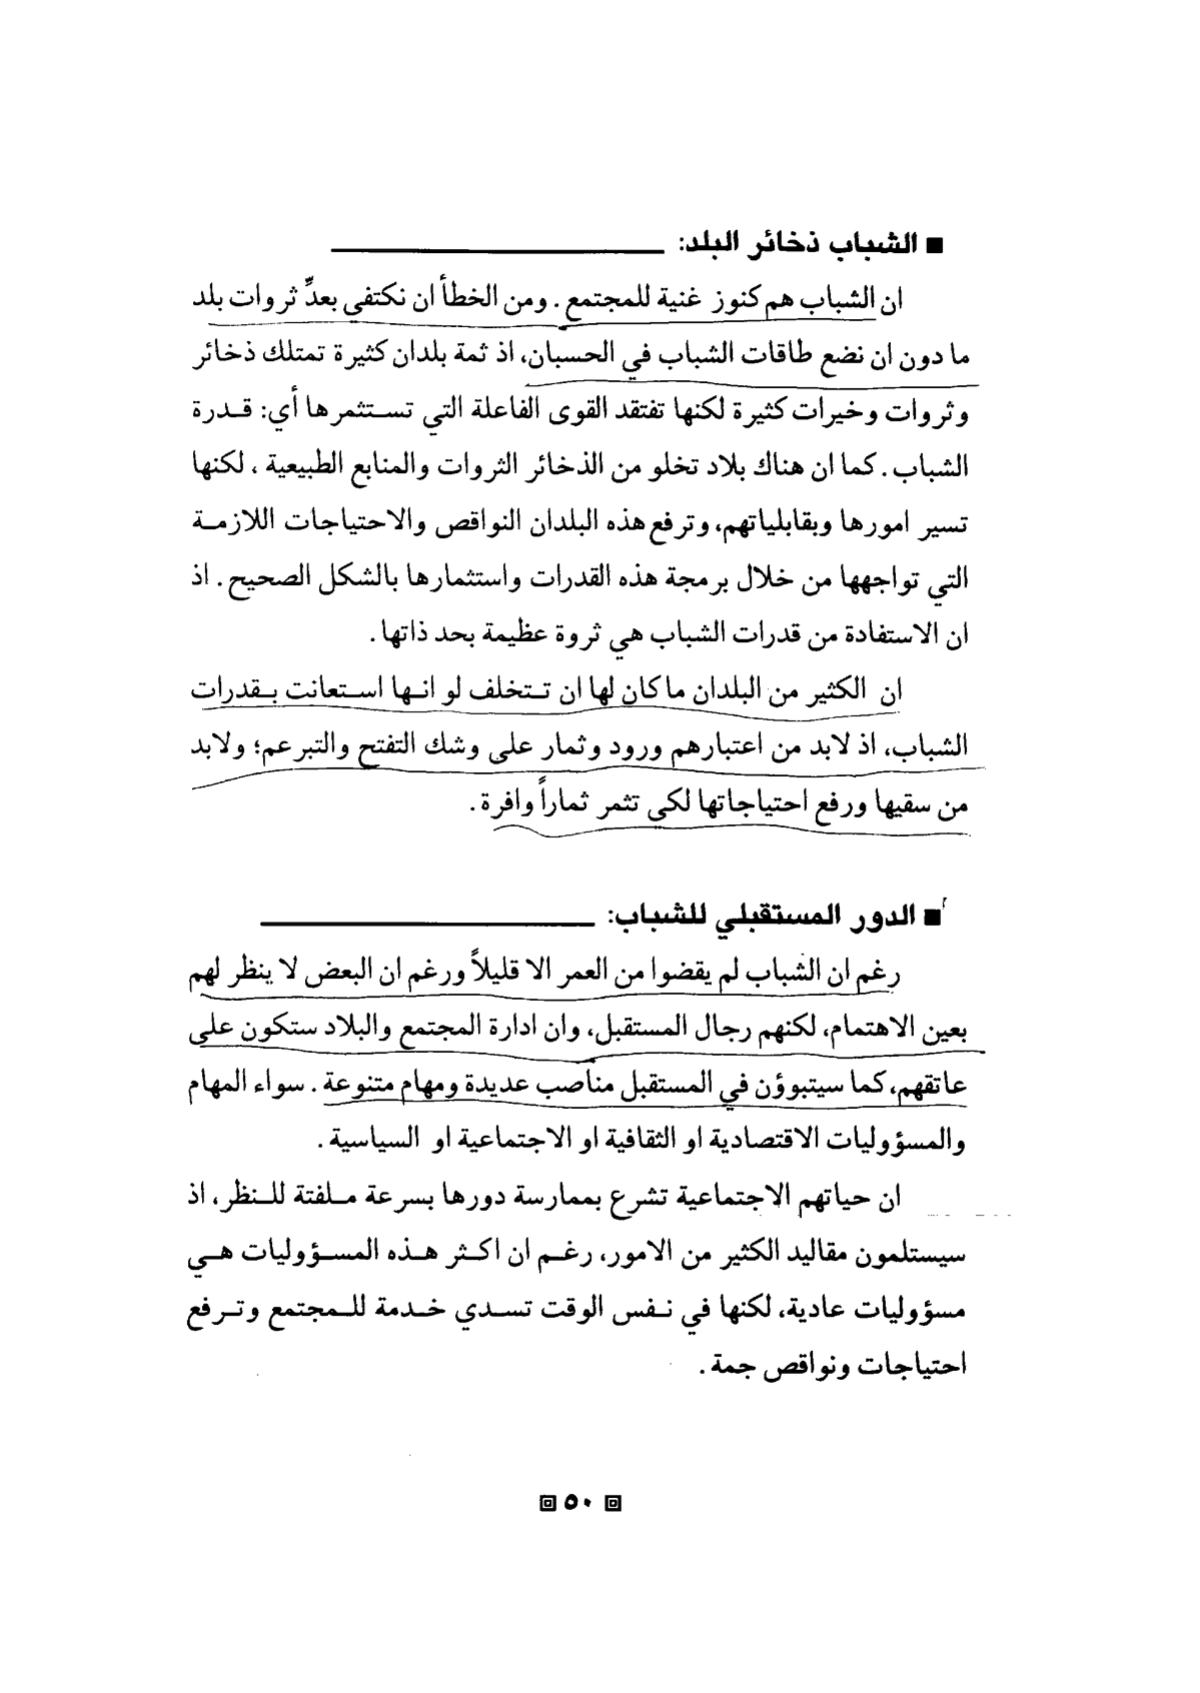 ■ الشباب ذخائر البلد:
ان الشباب هم كنوز غنية للمجتمع . ومن الخطأ ان نكتفي بعدِّ ثروات بلد
ما دون ان نضع طاقات الشباب في الحسبان، اذ ثمة بلدان كثيرة تمتلك ذخائر
وثروات وخيرات كثيرة لكنها تفتقد القوى الفاعلة التي تستثمرها أي: قدرة
الشباب . كما ان هناك بلاد تخلو من الذخائر الثروات والمنابع الطبيعية ، لكنها
تسير امورها وبقابلياتهم، وترفع هذه البلدان النواقص والاحتياجات اللازمة
التي تواجهها من خلال برمجة هذه القدرات واستثمارها بالشكل الصحيح . اذ
ان الاستفادة من قدرات الشباب هي ثروة عظيمة بحد ذاتها .
ان الكثير من البلدان ما كان لها ان تتخلف لو انها استعانت بقدرات
الشباب، اذ لابد من اعتبارهم ورود وثمار على وشك التفتح والتبرعم؛ ولابد
من سقيها ورفع احتياجاتها لكي تثمر ثماراً وافرة .
■ الدور المستقبلي للشباب:
رغم ان الشباب لم يقضوا من العمر الا قليلاً ورغم ان البعض لا ينظر لهم
بعين الاهتمام، لكنهم رجال المستقبل، وان ادارة المجتمع والبلاد ستكون على
عاتقهم، كما سيتبوؤن في المستقبل مناصب عديدة ومهام متنوعة . سواء المهام
والمسؤوليات الاقتصادية او الثقافية او الاجتماعية او السياسية .
ان حياتهم الاجتماعية تشرع بممارسة دورها بسرعة ملفتة للنظر، اذ
سيستلمون مقاليد الكثير من الامور، رغم ان اكثر هذه المسؤوليات هي
مسؤوليات عادية، لكنها في نفس الوقت تسدي خدمة للمجتمع وترفع
احتياجات ونواقص جمة .
٥٠